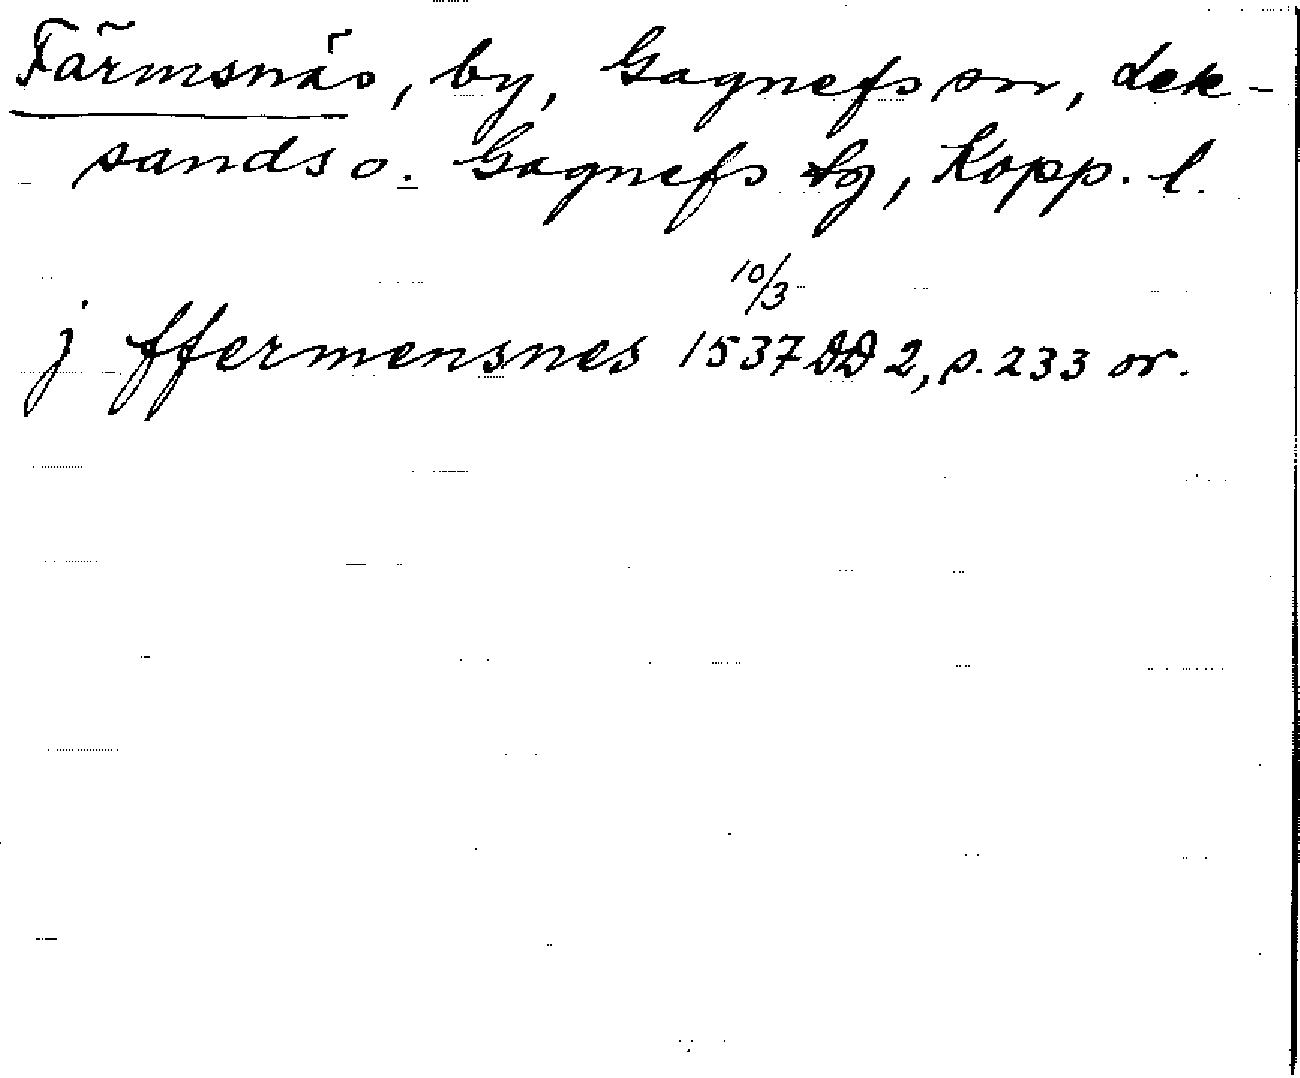 Färmsnäs, by, Gagnefs sn, Lek-
sands o. Gagnefs tg, Kopp. l.
10/3
j ffermensnes 1537 DD 2, s. 233 or.